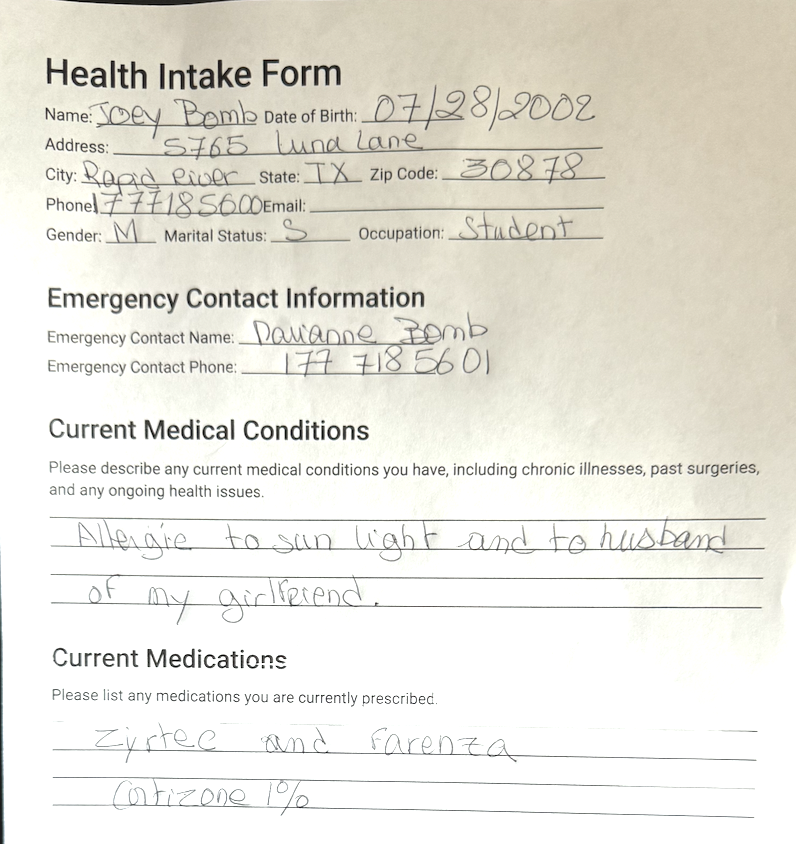 Health Intake Form
Name: Joey Bomb Date of Birth: 07/28/2002
Address: 5765 Luna Lane
City: Rapid River State: TX Zip Code: 30878
Phone 1777185600 Email:
Gender: M Marital Status: S Occupation: Student
Emergency Contact Information
Emergency Contact Name: Bomb
Emergency Contact Phone: 177 7185601
Current Medical Conditions
Please describe any current medical conditions you have, including chronic illnesses, past surgeries,
and any ongoing health issues.
Allergie to sun light and to husband
of my girlfreiend.
Current Medications
Please list any medications you are currently prescribed.
Zyrtec and Farenza
Cortizone 1%